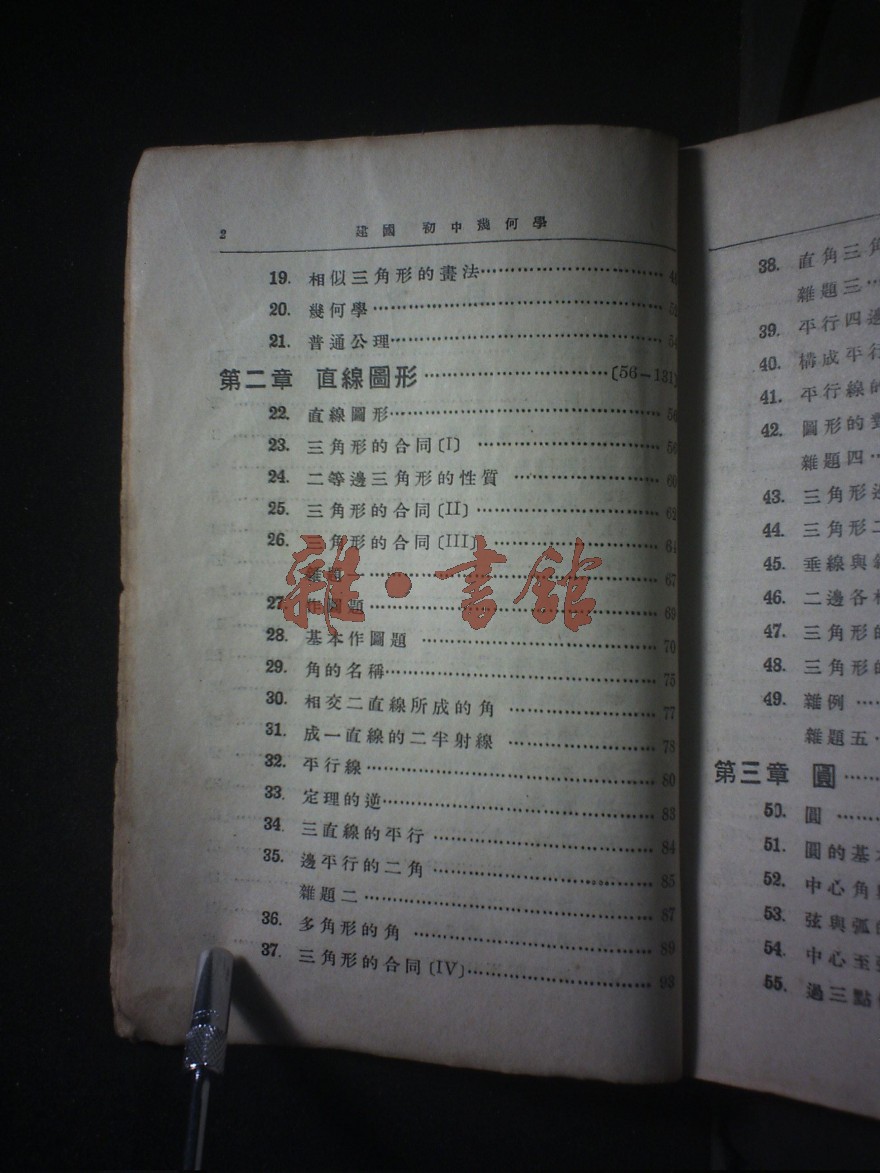 2
建國 初中幾何學
19. 相似三角形的畫法
20. 幾何學
21. 普通公理 54
第二章 直線圖形 〔56—131〕
22. 直線圖形 56
23. 三角形的合同〔I〕 56
24. 二等邊三角形的性質 60
25. 三角形的合同〔II〕 62
26. 三角形的合同〔III〕 64
雜題一 67
27. 作圖題 69
28. 基本作圖題 70
29. 角的名稱 75
30. 相交二直線所成的角 77
31. 成一直線的二半射線 78
32. 平行線 80
33. 定理的逆 83
34. 三直線的平行 84
35. 邊平行的二角 85
雜題二 87
36. 多角形的角 89
37. 三角形的合同〔IV〕 93
雜·書館
38. 直角三角
雜題三
39. 平行四邊
40. 構成平行
41. 平行線的
42. 圖形的對
雜題四
43. 三角形
44. 三角形二
45. 垂線與
46. 二邊各
47. 三角形的
48. 三角形的
49. 雜例
雜題五
第三章 圓
50. 圓
51. 圓的基
52. 中心角與
53. 弦與弧的
54. 中心至弦
55. 過三點